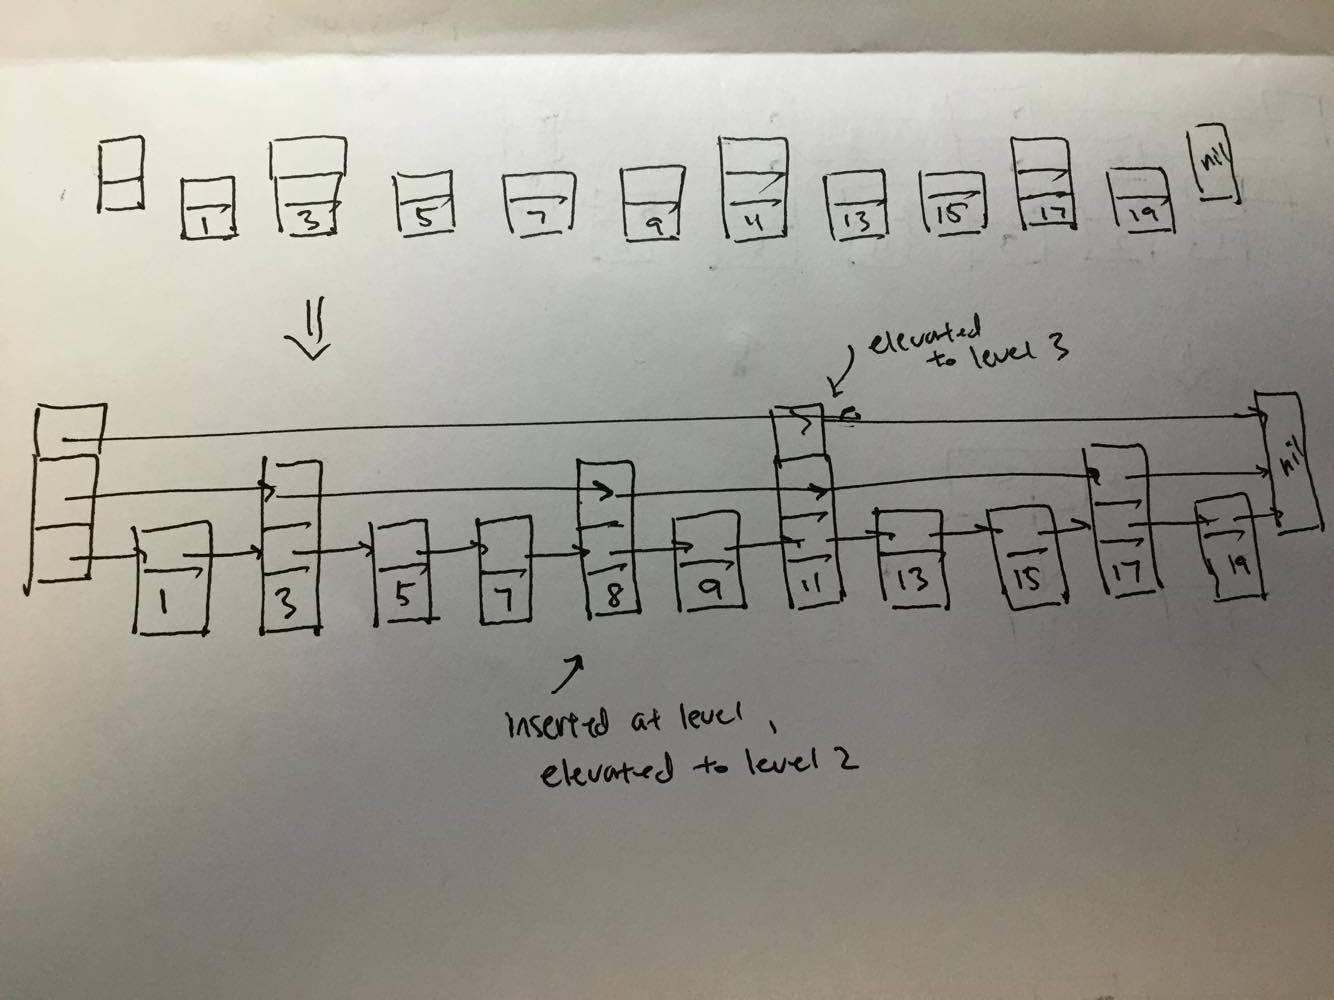 1 3 5 7 9 11 13 15 17 19 nil
elevated
to level 3
nil
1 3 5 7 8 9 11 13 15 17 19
inserted at level 1
elevated to level 2